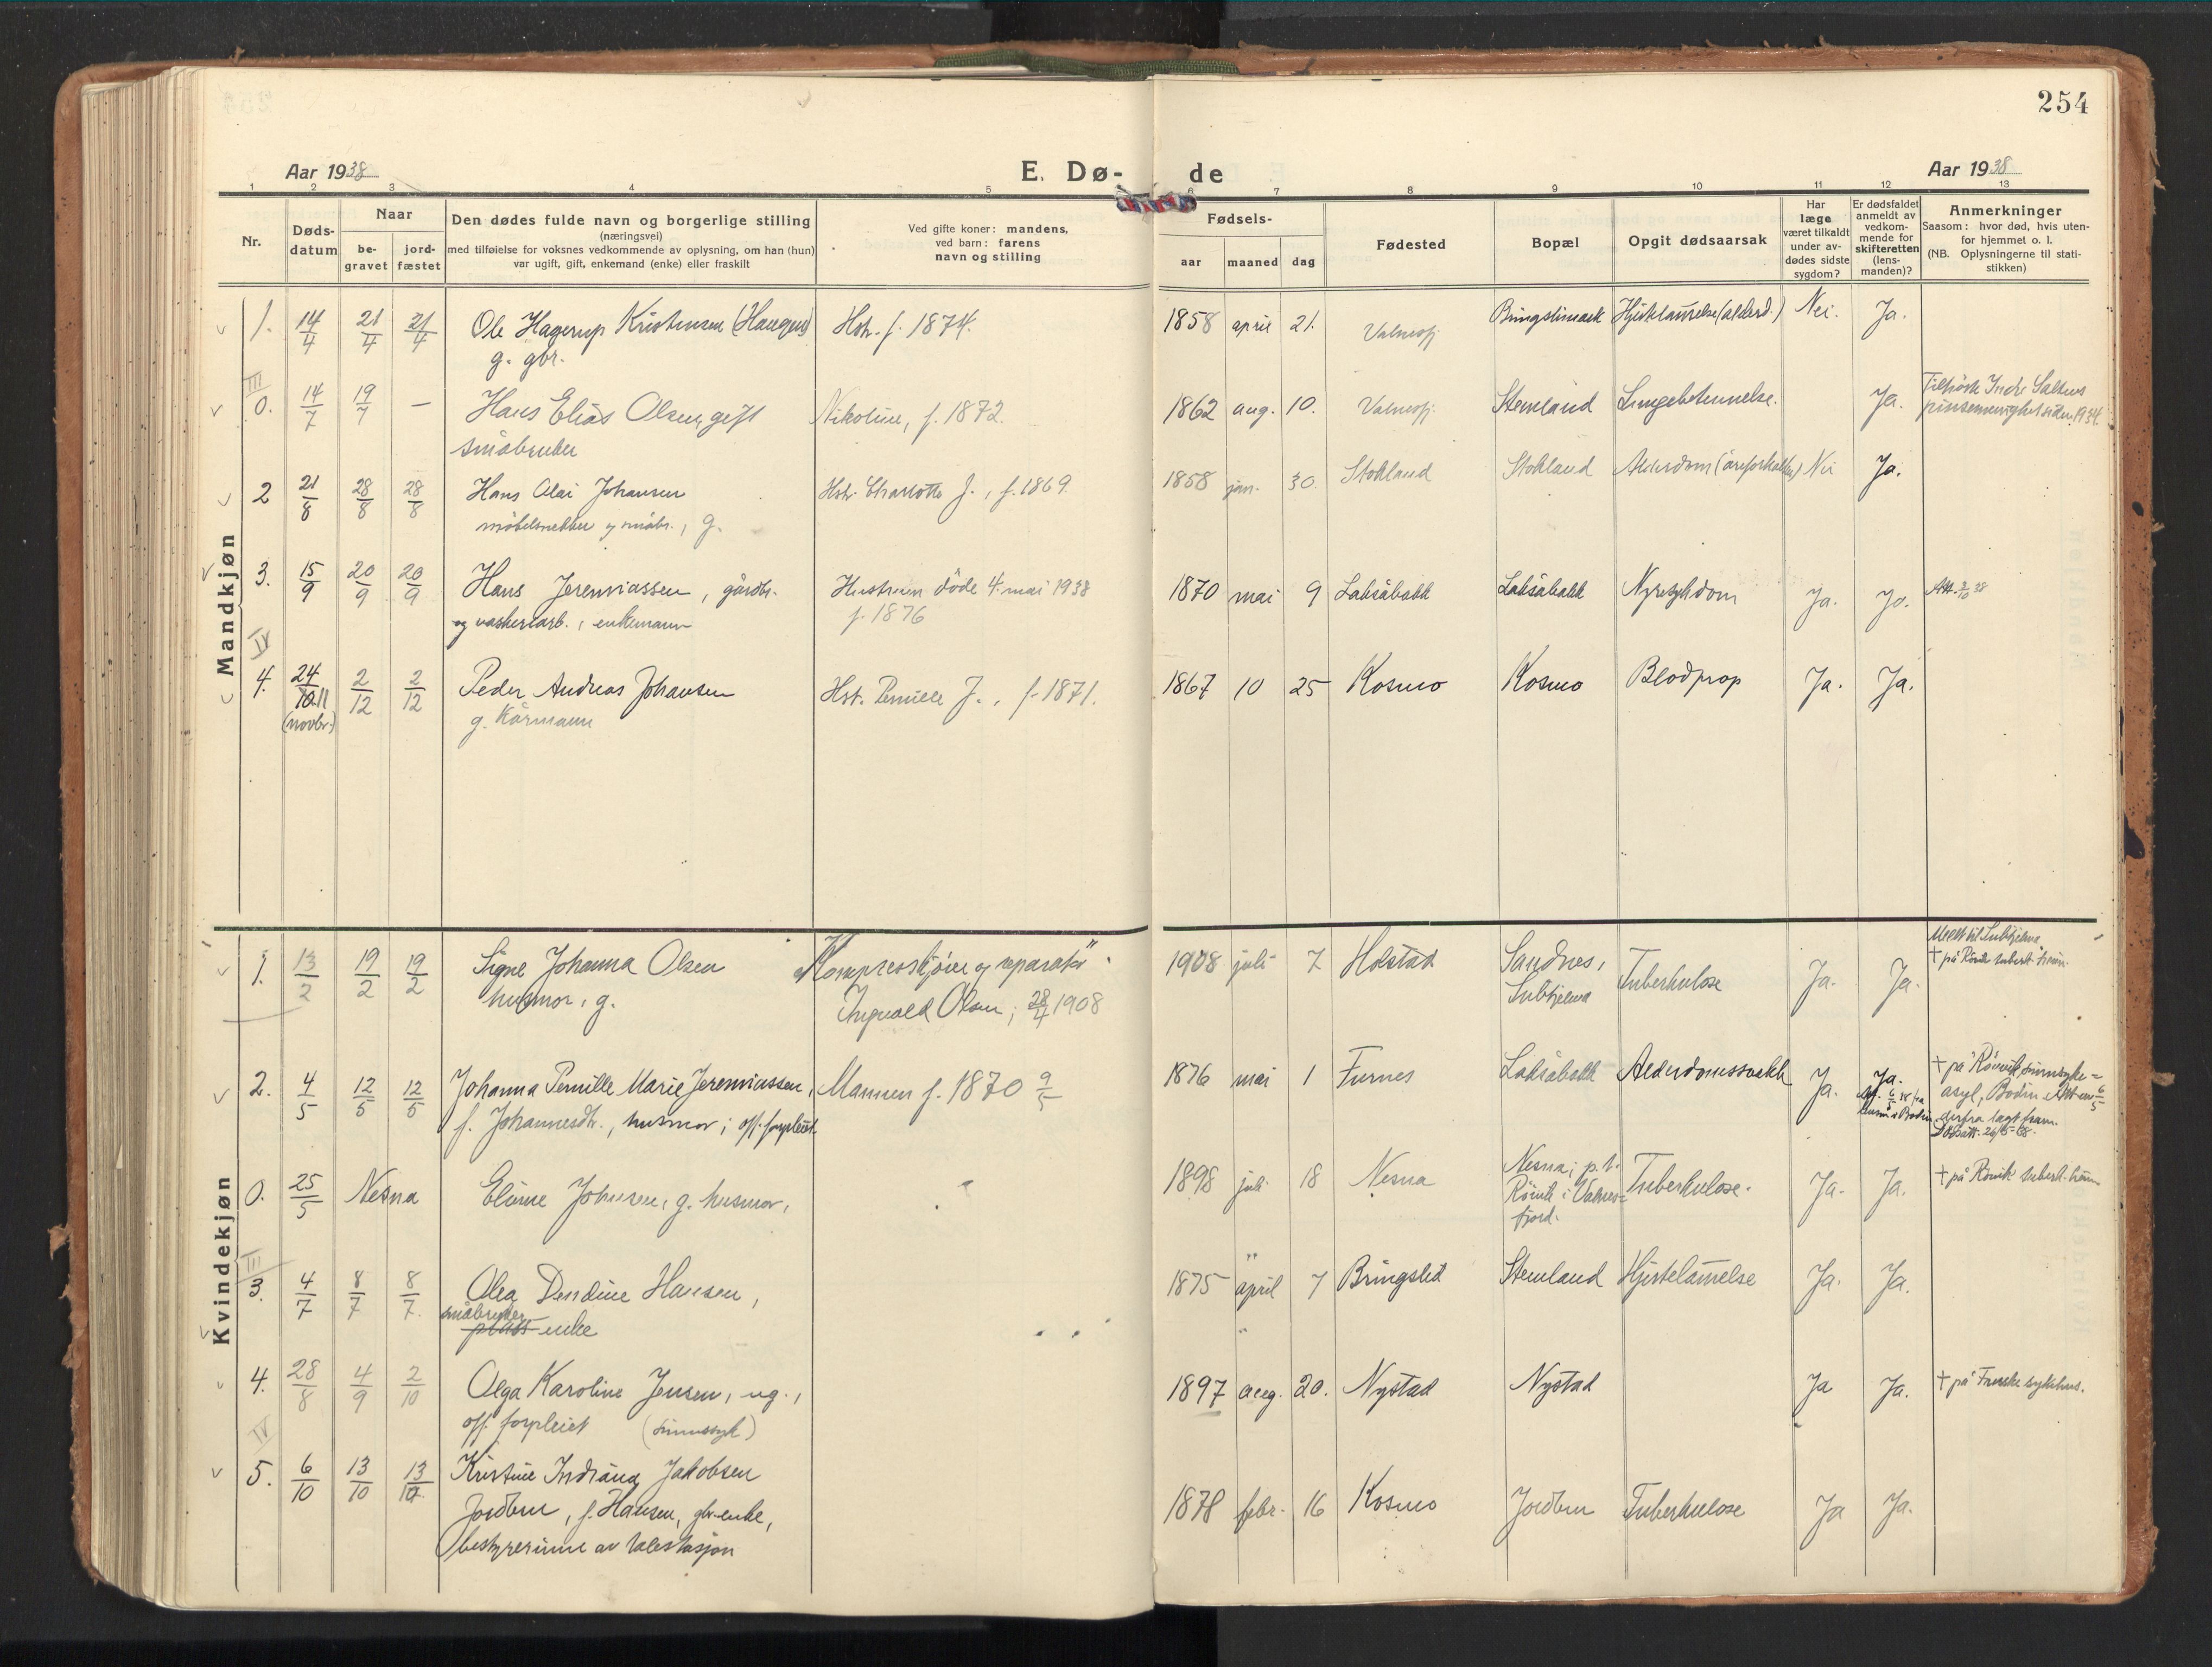 254
Aar 1938
E. Dø-
de
Aar 1938
1 2 3 4 5 6 7 8 9 10 11 12 13
Nr.
Døds-
datum
Naar
be-
gravet
jord-
fæstet
Den dødes fulde navn og borgerlige stilling
(næringsvei)
med tilføielse for voksnes vedkommende av oplysning, om han (hun)
var ugift, gift, enkemand (enke) eller fraskilt
Ved gifte koner: mandens,
ved barn: farens
navn og stilling
Fødsels-
aar maaned dag
Fødested
Bopæl
Opgit dødsaarsak
Har
læge
været tilkaldt
under av-
dødes sidste
sygdom?
Er dødsfaldet
anmeldt av
vedkom-
mende for
skifteretten
(lens-
manden)?
Anmerkninger
Saasom: hvor død, hvis uten-
for hjemmet o. l.
(NB. Oplysningerne til stati-
stikken)
Mandkjøn
1. 14/4 21/4 21/4 Ole Hagerup Kristensen (Haugen) Hstr. f. 1874. 1858 april 21. Valnesfj. Bringslimark Hjertelammelse (alderd.) Nei. Ja.
g. gbr.
III
0. 14/7 19/7 — Hans Elias Olsen, gift Nikoline, f. 1872. 1862 aug. 10. Valnesfj. Stemland Lungebetennelse. Ja. Tilhørte Indre Saltens
småbruker pinsemenighet siden 1934.
2 21/8 28/8 28/8 Hans Olai Johansen Hstr. Charlotte J., f. 1869. 1858 jan. 30. Stokland Stokland Alderdom (åreforkalkn) Nei Ja.
møbelsnekker og småbr., g.
3. 15/9 20/9 20/9 Hans Jeremiassen, gårdbr. Hustruen døde 4. mai 1938 1870 mai 9 Laksåbakk Laksåbakk Nyresykdom Ja. Ja. Att. 3/10 38
og vaskeriarb., enkemann f. 1876
IV
4. 24/10.11 2/12 2/12 Peder Andreas Johansen Hst. Pernille J., f. 1871. 1867 10 25 Kosmo Kosmo Blodprop Ja. Ja.
(novbr.) g. Kårmann
Kvindekjøn
1. 13/2 19/2 19/2 Signe Johanna Olsen Kompressorkjører og reparatør 1908 juli 7 Holstad Sandnes, Tuberkulose Ja. Ja. Meldt til Sulitjelma
husmor, g. Ingvald Olsen; 28/4 1908 Sulitjelma † på Rønvik tuberk. heim.
2. 4/5 12/5 12/5 Johanna Pernille Marie Jeremiassen, Mannen f. 1870 9/5 1876 mai 1 Furnes Laksåbakk Alderdomssvakh. Ja. Ja. † på Rönvik sinnsyke=
f. Johannesdtr., husmor; off. forpleiet. asyl, Bodin. Att. 6/5
derfra lagt fram.
0. 25/5 Nesna Eline Johnsen, g. husmor, 1898 juli 18 Nesna Nesna; p. t. Tuberkulose. Ja. Ja. † på Rönvik tuberk. heim
Rönvik i Valnes=
fjord.
III
3. 4/7 8/7 8/7. Olea Dendine Hansen, 1875 april 7 Bringslid Stemland Hjertelammelse Ja. Ja.
småbruker
plass enke
4. 28/8 4/9 2/10 Olga Karoline Jensen, ug., 1897 aug. 20. Nystad Nystad Ja Ja. † på Fauske sykehus.
off. forpleiet (sinnssyk)
IV
5. 6/10 13/10 13/10 Kristine Indiana Jakobsen 1878 febr. 16 Kosmo Jordbru Tuberkulose Ja Ja.
Jordbru, f. Hansen, gbr.enke,
bestyrerinne av talestasjon